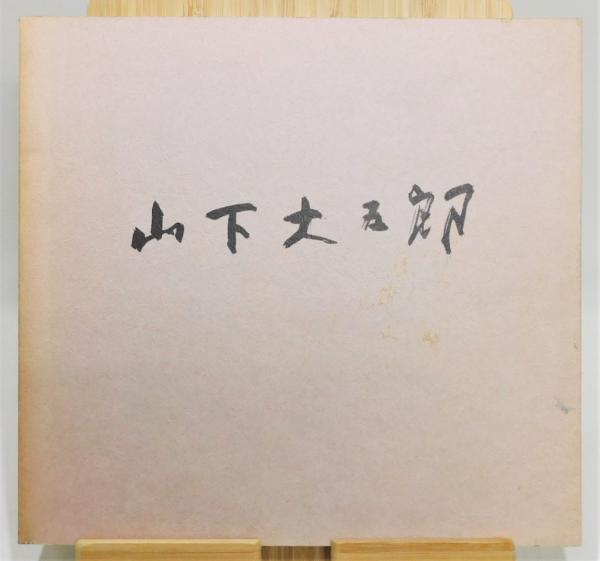 山下大五郎